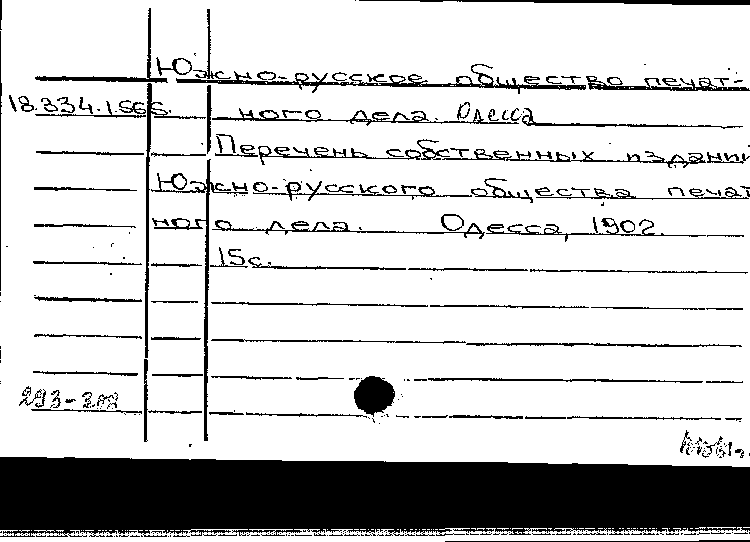 Южно-русское общество печат-
18.334.1.566. ного дела. Одесса
Перечень собственных издании
Южно-русского общества печат
ного дела. Одесса, 1902.
15с.
293-308